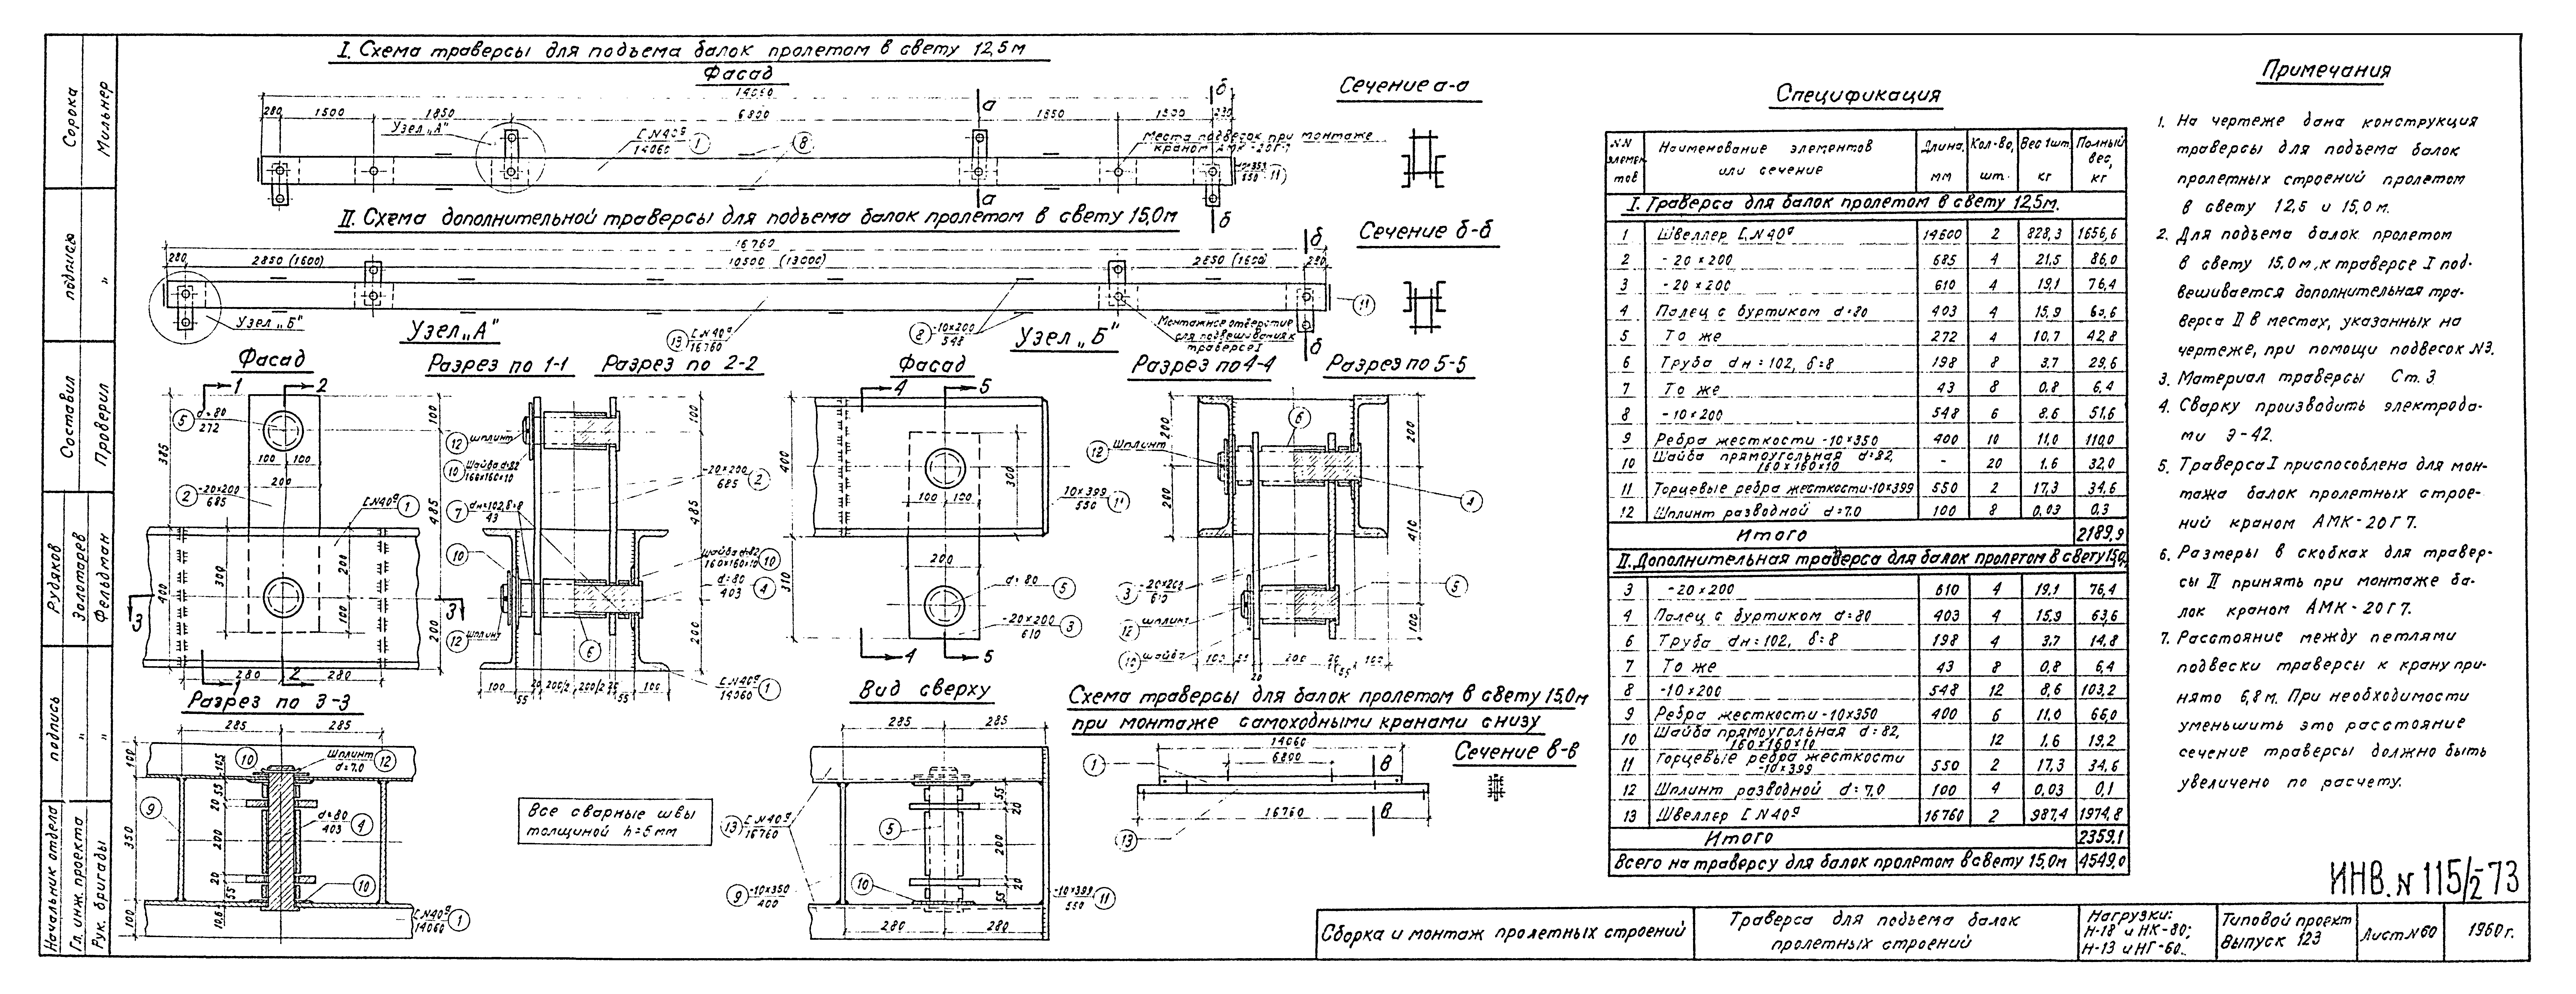 I. Схема траверсы для подъема балок пролетом в свету 12,5м
Фасад
14060
280 1500 1850 6800 1500
Узел „А"
[ N 40ª
14060
1
8
Места подвесок при монтаже
краном АМК-20Г7
550 11
а
а
б
б
Сечение а-а
II. Схема дополнительной траверсы для подъема балок пролетом в свету 15,0м
16760
280 2850 (1600) 10500 (13000) 2850 (1600) 280
б
б
Узел „Б"
13 [ N 40ª
16760
8 -10×200
548
Монтажное отверстие
для подвешивания к
траверсе I
11
Сечение б-б
Узел „А"
Фасад
Разрез по 1-1
Разрез по 2-2
1 2
5 d=80
272
100 100
200
2 -20×200
685
[ N 40ª 1
385 400 300 200 100
100 485 200
3 3
280 280
1 2
12 шплинт
10 Шайба d=82
160×160×10
-20×200
685 2
7 dн=102, δ=8
43
10
Шайба d=82
160×160×10 10
d=80
403 4
12 шплинт
6
100 485 200
100 55 20 200/2 200/2 55 100
[ N 40ª
14060 1
Узел „Б"
Фасад
Разрез по 4-4
Разрез по 5-5
4 5
400 310 300
100 100
200
10×399
550 11
d=80 5
-20×200
610 3
4 5
200 200
12 Шплинт
6
4
3 -20×200
610
5
12 шплинт
10 шайба
200 410 100
100 55 200 55 100
20
Разрез по 3-3
285 285
100 350 100
10
Шплинт
d=7,0 12
9
105 55 20 200 20 55
d=80
403 4
10
[ N 40ª
14060 1
Все сварные швы
толщиной h=6мм
Вид сверху
285 285
13 [ N 40ª
16760
5
10
55 20 200 20 55
9 -10×350
400
-10×399
550 11
280 280
Схема траверсы для балок пролетом в свету 15,0м
при монтаже самоходными кранами снизу
14060
6800
1
в
16760
в
13
Сечение в-в
Спецификация
NN элементов | Наименование элементов или сечение | Длина, мм | Кол-во, шт. | Вес 1шт. кг | Полный вес, кг
I. Траверса для балок пролетом в свету 12,5м.
1 Швеллер [ N 40ª 14600 2 828,3 1656,6
2 -20×200 685 4 21,5 86,0
3 -20×200 610 4 19,1 76,4
4 Палец с буртиком d=80 403 4 15,9 63,6
5 То же 272 4 10,7 42,8
6 Труба dн=102, δ=8 198 8 3,7 29,6
7 То же 43 8 0,8 6,4
8 -10×200 548 6 8,6 51,6
9 Ребра жесткости -10×350 400 10 11,0 110,0
10 Шайба прямоугольная d=82, 160×160×10 - 20 1,6 32,0
11 Торцевые ребра жесткости -10×399 550 2 17,3 34,6
12 Шплинт разводной d=7,0 100 8 0,03 0,3
Итого 2189,9
II. Дополнительная траверса для балок пролетом в свету 15,0
3 -20×200 610 4 19,1 76,4
4 Палец с буртиком d=80 403 4 15,9 63,6
6 Труба dн=102, δ=8 198 4 3,7 14,8
7 То же 43 8 0,8 6,4
8 -10×200 548 12 8,6 103,2
9 Ребра жесткости -10×350 400 6 11,0 66,0
10 Шайба прямоугольная d=82, 160×160×10 12 1,6 19,2
11 Торцевые ребра жесткости -10×399 550 2 17,3 34,6
12 Шплинт разводной d=7,0 100 4 0,03 0,1
13 Швеллер [ N 40ª 16760 2 987,4 1974,8
Итого 2359,1
Всего на траверсу для балок пролетом в свету 15,0м 4549,0
Примечания
1. На чертеже дана конструкция
траверсы для подъема балок
пролетных строений пролетом
в свету 12,5 и 15,0м.
2. Для подъема балок пролетом
в свету 15,0м, к траверсе I под-
вешивается дополнительная тра-
верса II в местах, указанных на
чертеже, при помощи подвесок N3.
3. Материал траверсы Ст. 3
4. Сварку производить электрода-
ми Э-42.
5. Траверса I приспособлена для мон-
тажа балок пролетных строе-
ний краном АМК-20Г7.
6. Размеры в скобках для травер-
сы II принять при монтаже ба-
лок краном АМК-20Г7.
7. Расстояние между петлями
подвески траверсы к крану при-
нято 6,8м. При необходимости
уменьшить это расстояние
сечение траверсы должно быть
увеличено по расчету.
ИНВ. N 115/2-73
Сборка и монтаж пролетных строений
Траверса для подъема балок
пролетных строений
Нагрузки:
Н-18 и НК-80;
Н-13 и НГ-60.
Типовой проект
Выпуск 123
Лист N 60
1960г.
Начальник отдела подпись Рудяков
Гл. инж. проекта " Золотарев
Рук. бригады " Фельдман
Составил подпись Сорока
Проверил " Мильнер